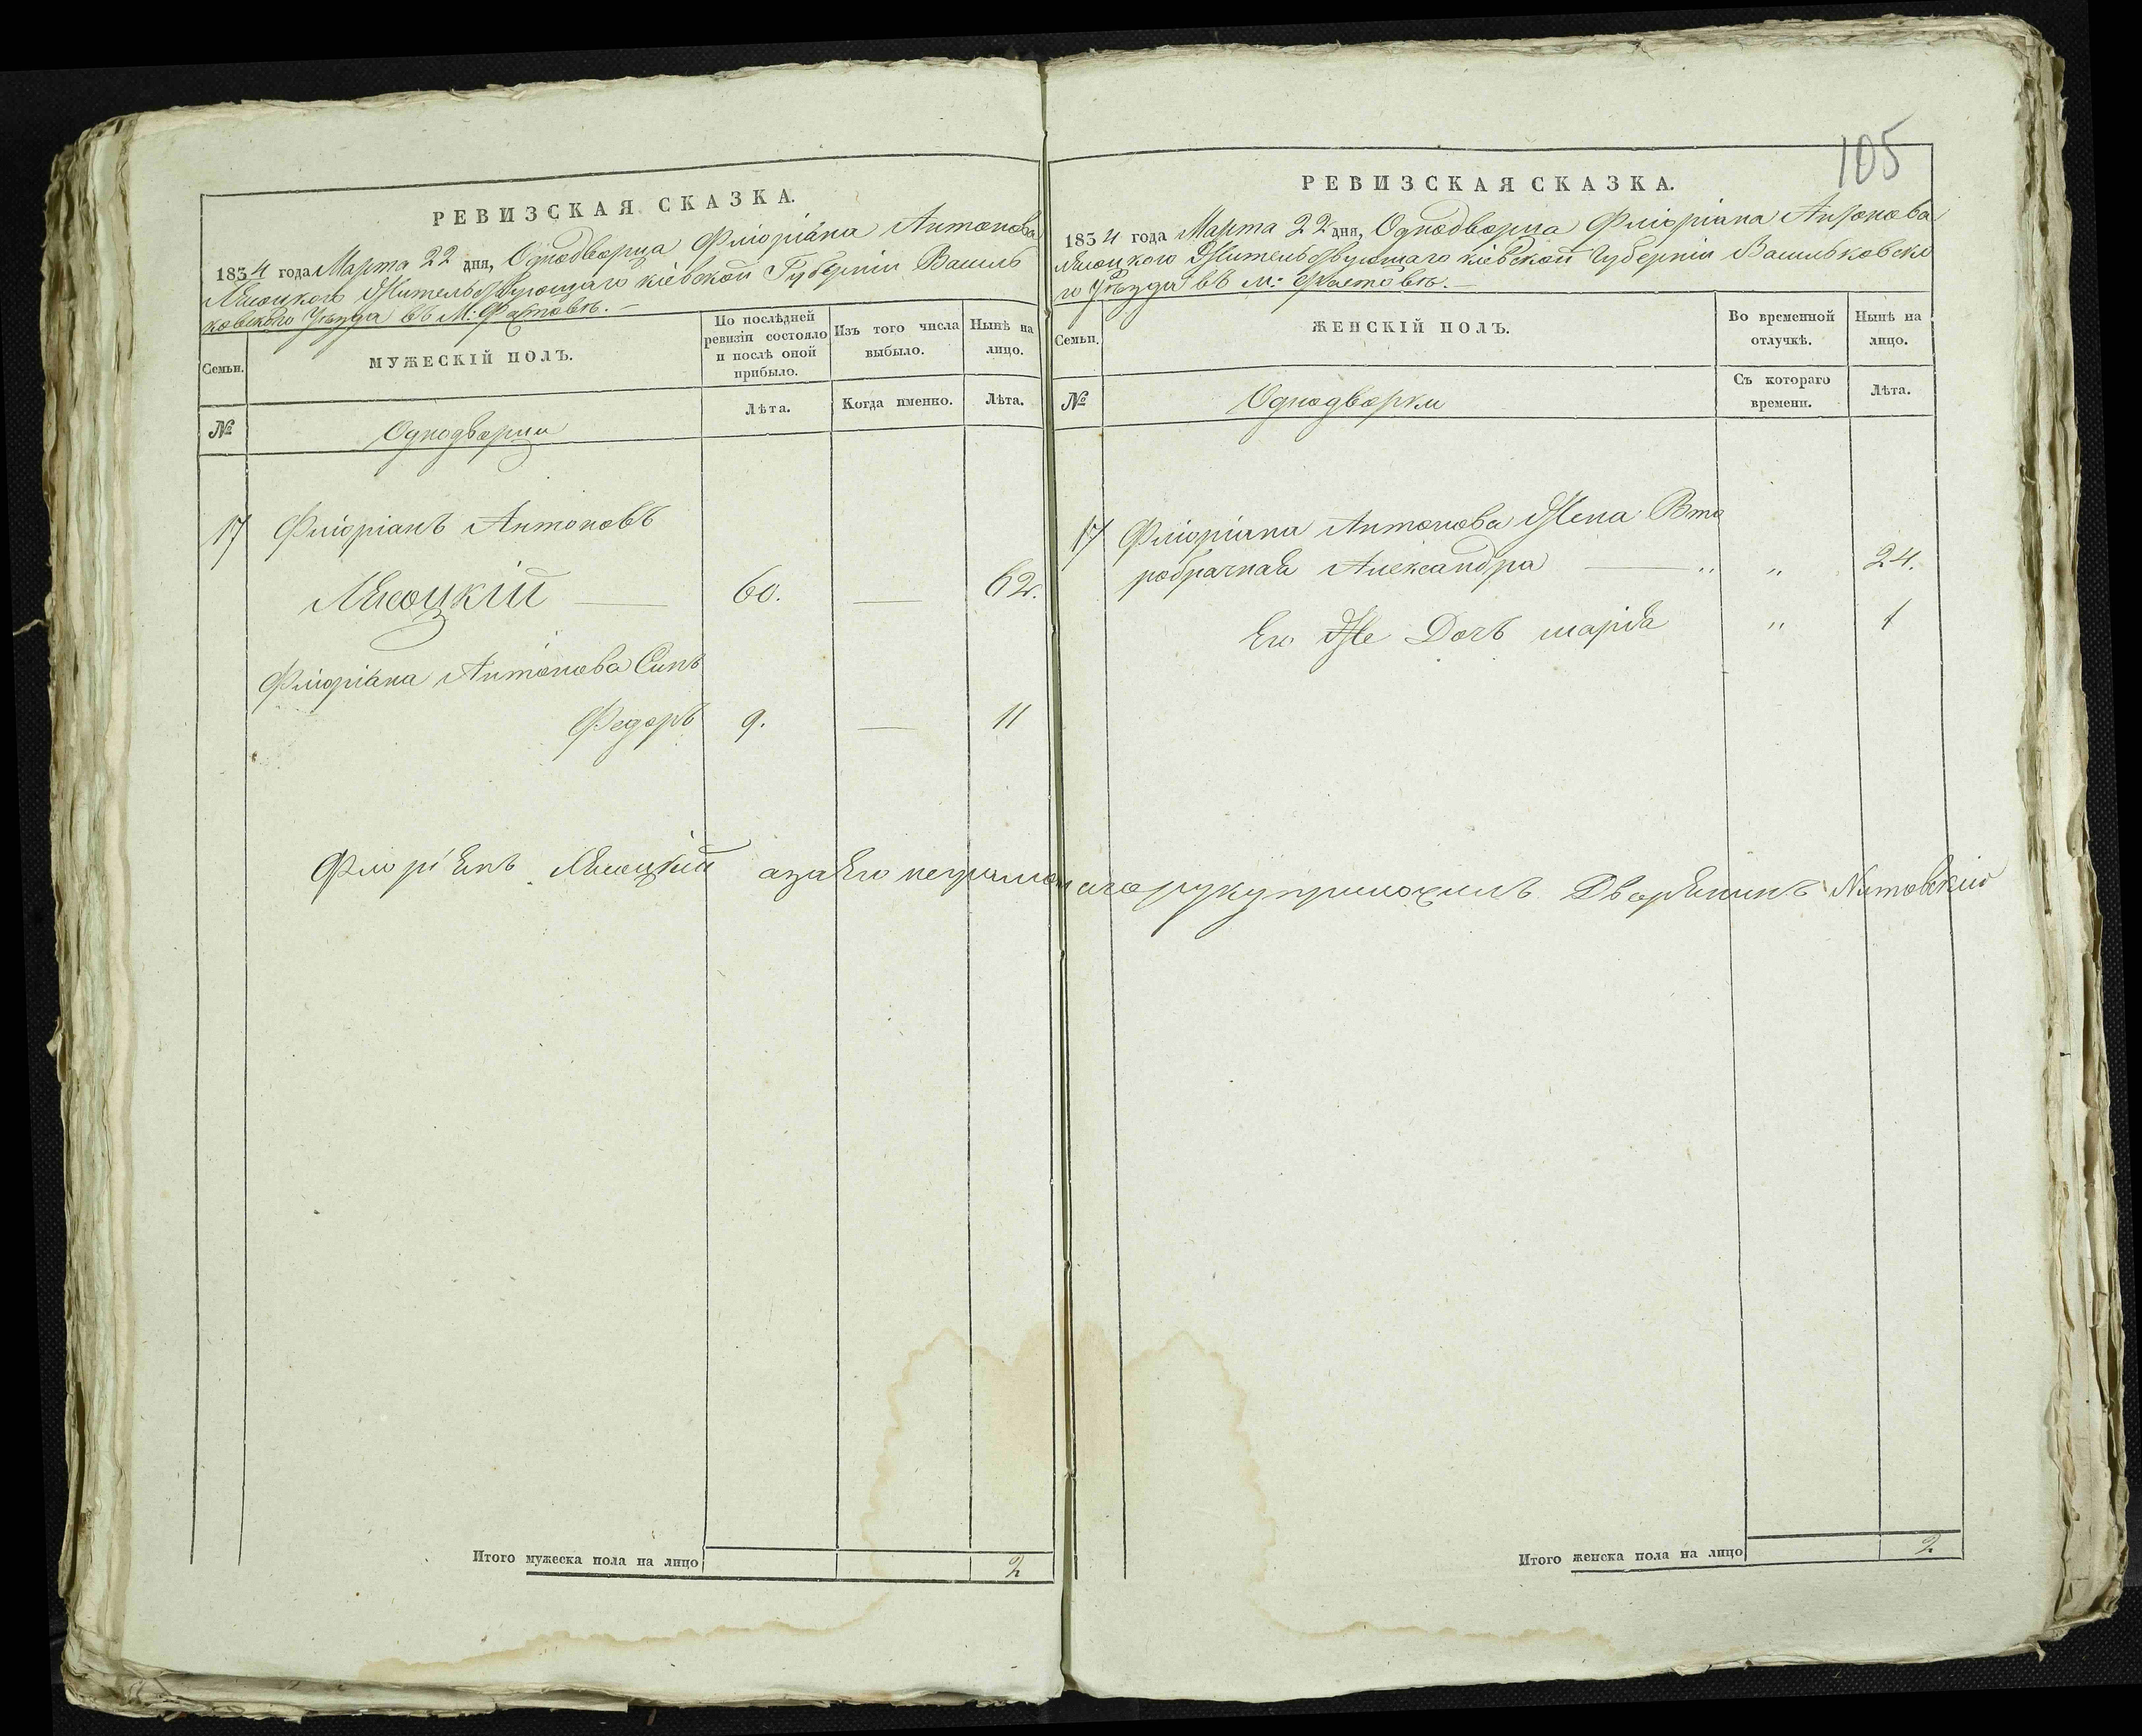 РЕВИЗСКАЯ СКАЗКА.
1834 года Марта 22 дня, Однодворца Флюріана Антонова
Лясоцкого Жительствующаго кіевской Губерніи Василь
ковского Уезда въ М: Фастовѣ.—
Семьи.
МУЖЕСКІЙ ПОЛЪ.
По послѣдней ревизіи состояло и послѣ оной прибыло.
Изъ того числа выбыло.
Нынѣ на лицо.
№
Однодворцы
Лѣта.
Когда именно.
Лѣта.
17 Флюріанъ Антоновъ
Лясоцкій — 60. — 62.
Флюріана Антонова Сынъ
Федоръ 9. — 11
Итого мужеска пола на лицо 2
105
РЕВИЗСКАЯ СКАЗКА.
1834 года Марта 22 дня, Однодворца Флюріана Антонова
Лясоцкого Жительствующаго кіевской Губерніи Васильковско
го Уезда въ м: Фастовѣ.—
Семьи.
ЖЕНСКІЙ ПОЛЪ.
Во временной отлучкѣ.
Нынѣ на лицо.
№
Однодворки
Съ котораго времени.
Лѣта.
17 Флюріана Антонова Жена Вто
робрачная Александра — „ „ 24.
Его Же Дочь марія „ 1
Флюріянъ Лясоцкій азаего неграмотнаго руку приложилъ Дворянинъ
Итого женска пола на лицо 2.